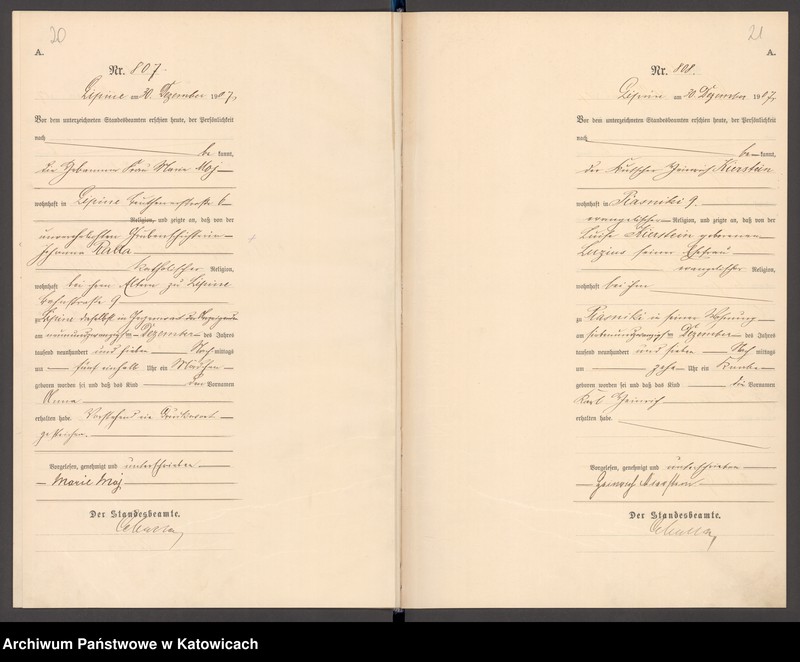 20
A.
Nr. 807.
Lipine am 30. Dezember 1907,
Vor dem unterzeichneten Standesbeamten erschien heute, der Persönlichkeit
nach
be kannt,
die Hebamme Frau Marie Moj
wohnhaft in Lipine Beuthenerstraße 6
Religion, und zeigte an, daß von der
unverehelichten
Johanna
katholischer Religion,
wohnhaft bei ihren Eltern zu Lipine
Bahnstraße 9
zu Lipine daselbst in Gegenwart der Anzeigende
am neunundzwanzigsten Dezember des Jahres
tausend neunhundert und sieben Nach mittags
um fünf einhalb Uhr ein Mädchen
geboren worden sei und daß das Kind den Vornamen
Anna
erhalten habe. Vorstehend ein Druckwort
gestrichen.
Vorgelesen, genehmigt und unterschrieben
Marie Moj
Der Standesbeamte.
21
A.
Nr. 808.
Lipine am 30. Dezember 1907,
Vor dem unterzeichneten Standesbeamten erschien heute, der Persönlichkeit
nach
be kannt,
der Kutscher Heinrich Kierstein
wohnhaft in Piasniki 9.
evangelischer Religion, und zeigte an, daß von der
Luise Kierstein geborenen
seiner Ehefrau
evangelischer Religion,
wohnhaft bei ihm
zu Piasniki in seiner Wohnung
am siebenundzwanzigsten Dezember des Jahres
tausend neunhundert und sieben Nach mittags
um zehn Uhr ein Knabe
geboren worden sei und daß das Kind die Vornamen
Karl Heinrich
erhalten habe.
Vorgelesen, genehmigt und unterschrieben
Heinrich Kierstein
Der Standesbeamte.
Archiwum Państwowe w Katowicach